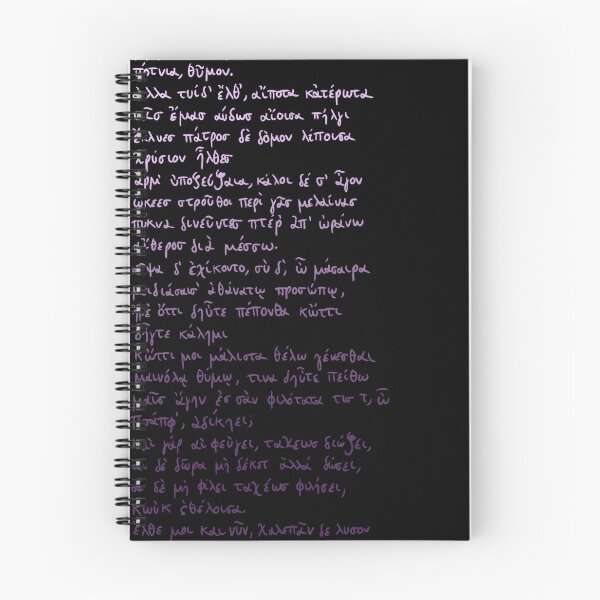 πότνια, θῦμον.
ἀλλα τυίδ' ἔλθ', αἴποτα κἀτέρωτα
τᾶσ ἔμασ αύδωσ αἴοισα πήλγι
ἔκλυεσ πάτροσ δὲ δόμον λίποισα
χρύσιον ἦλθεσ
ἄρμ' ὐποζεύξαια, κάλοι δέ σ' ἆγον
ὤκεεσ στροῦθοι περὶ γᾶσ μελαίνασ
πυκνα δινεῦντεσ πτέρ' ἀπ' ὠράνω
αἴθεροσ διὰ μέσσω.
αἶψα δ' ἐχίκοντο, σὺ δ', ὦ μάσαιρα
μειδιάσαισ' ἀθάνατῳ προσώπῳ,
ἤρε' ὄττι δηὖτε πέπονθα κὤττι
δηὖτε κάλημι
κὤττι μοι μάλιστα θέλω γένεσθαι
μαινόλᾳ θύμῳ, τινα δηὖτε πείθω
μαῖσ ἄγην ἐσ σὰν φιλότατα τισ τ, ὦ
Ψάπφ', ἀδίκηει;
καὶ γάρ αἰ φεύγει, ταχέωσ διώξει,
αἰ δὲ δῶρα μὴ δέκετ ἀλλά δώσει,
αἰ δὲ μὴ φίλει ταχέωσ φιλήσει,
κωὐκ ἐθέλοισα.
ἔλθε μοι καὶ νῦν, χαλεπᾶν δε λυσον